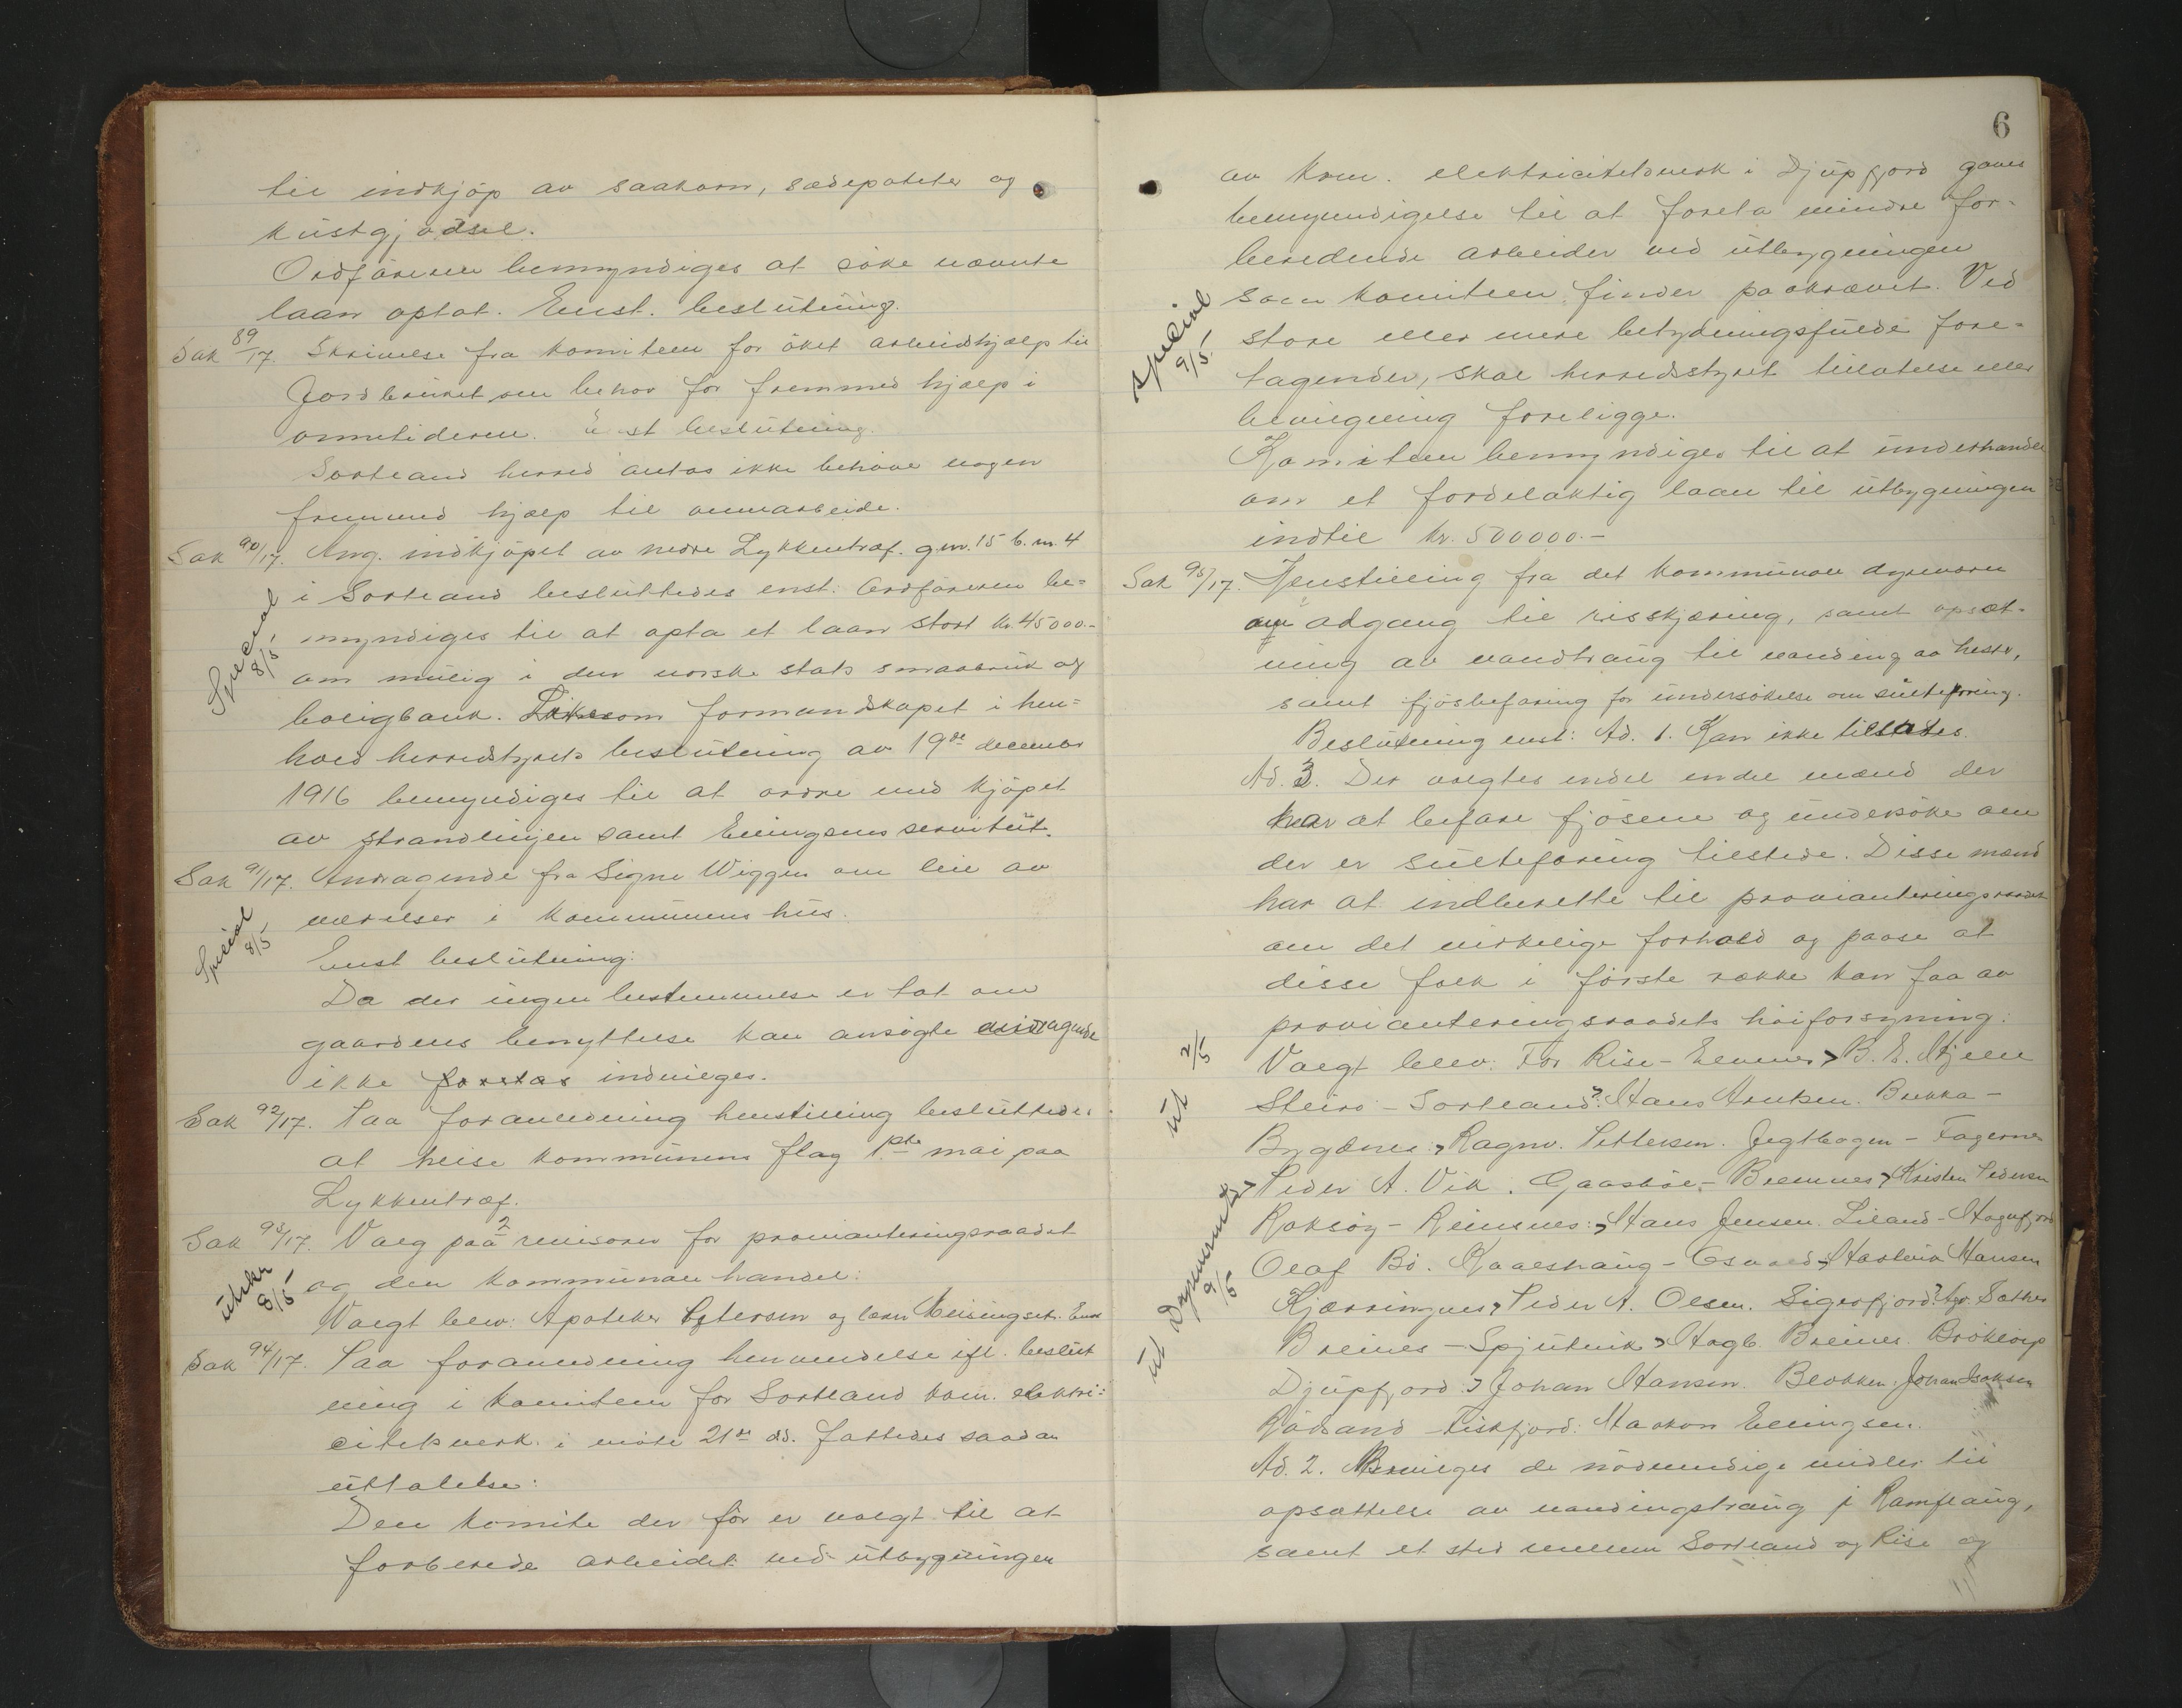 til indkjøp av saakorn, sædepoteter og
kunstgjødsel.
Ordføreren bemyndiges at søke nævnte
laan optat. Enst. beslutning.
Sak 89/17. Skrivelse fra komiteen for øket arbeidshjælp til
Jordbruket om behov for fremmed hjælp i
onnetiderne. Enst beslutning.
Sortland herred antas ikke behøve nogen
fremmed hjælp til onnarbeide.
Sak 90/17. Ang. indkjøpet av nedre Lykkentræf. g.nr. 15 b.nr. 4
i Sortland besluttedes enst. Ordføreren be-
myndiges til at opta et laan stort kr. 45000.-
om mulig i den norske stats smaabruk og
boligbank. Likesom formandskapet i hen-
hold herredstyrets beslutning av 19de december
1916 bemyndiges til at ordne med kjøpet
av strandlinjen samt Ellingsens servitut.
Special
8/5
Sak 91/17. Andragende fra Signe Wiggen om leie av
værelser i kommunens hus.
Enst beslutning:
Da der ingen bestemmelse er tat om
gaardens benyttelse kan ansøgte andragende
ikke foretas indvilges.
Special
8/5
Sak 92/17. Paa foranledning henstilling besluttedes
at heise kommunens flag 1ste mai paa
Lykkentræf.
Sak 93/17. Valg paa 2 revisorer for provianteringsraadet
og den kommunale handel:
Valgt blev: Apoteker Petersen og lærer Meisingset. Enst
utskr
8/5
Sak 94/17. Paa foranledning henvendelse ifl. beslut
ning i komiteen for Sortland kom. elektri-
citetsverk i møte 21de ds. fattedes saadan
uttalelse:
Den komite der før er valgt til at
forberede arbeidet ved utbygningen
6
av kom. elektricitetsverk i Djupfjord gives
bemyndigelse til at foreta mindre for-
beredende arbeider ved utbygningen
som komiteen finder paakrævet. Ved
store eller mere betydningsfulde fore-
tagender, skal herredstyret tillatelse eller
bevilgning foreligge.
Special
9/5
Komiteen bemyndiges til at underhandle
om et fordelaktig laan til utbygningen
indtil kr. 500000.-
Sak 95/17. Henstilling fra det kommunale dyrevern
om adgang til risskjæring, samt opsæt-
ning av vandtraug til vanding av hester,
samt fjøsbefaring for undersøkelse om sulteforing.
Beslutning enst: Ad. 1. Kan ikke tilstedes.
Ad. 3. Der valgtes endel endel mænd der
har at befare fjøsene og undersøke om
der er sulteforing tilstede. Disse mænd
har at indberette til provianteringsraadet
om det virkelige forhold og paase at
disse folk i første række kan faa av
provianteringsraadets høiforsyning.
ut 2/5
Valgt blev: For Rise - B. E.
Steiro - Sortland: Hans Arntsen. Bukka -
Bygdnes: Ragnv. Pettersen. Jegtbogen - Fagernes
Peder A. Vik. Gaasbøl - Blemnes Kristen Pedersen
Roksøy - Reinsnes: Hans Jensen. Liland - Hognfjord
Olaf Bø. Kvalshaug - Osvold Hartvik Hansen
Kjærringnes, Peder A. Olsen. Sigerfjord: Sæther
Breines - Spjutvik Hagb. Breines. Brokløis
Djupfjord: Johan Hansen. Blokken: Johan Isaksen
Rødsand Fiskfjord: Haakon Ellingsen.
ut Dyrevernet
9/5
Ad. 2. Bevilges de nødvendige midler til
opsættelse av vandingstraug i Ramflaug,
samt et sted mellem Sortland og Rise og